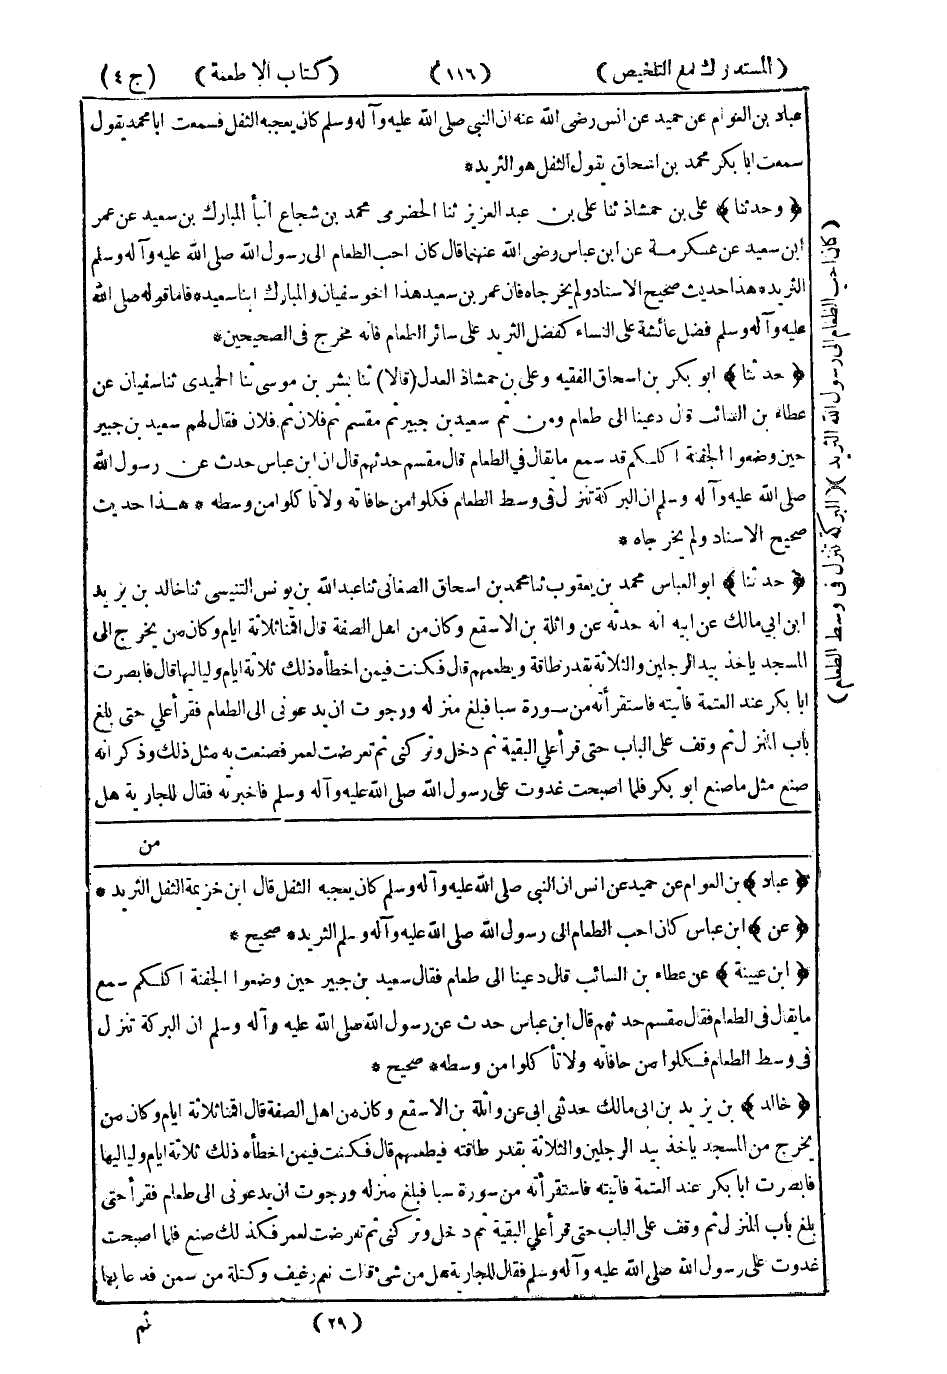 (المستدرك مع التلخيص) (١١٦) (كتاب الاطعمة) (ج ٤)
عباد بن العوام عن حميد عن انس رضى الله عنه ان النبي صلى الله عليه وآله وسلم كان يعجبه الثفل فسمعت ابا محمد يقول
سمعت ابا بكر محمد بن اسحاق يقول الثفل هو الثريد*
﴿وحدثنا﴾ على بن حمشاذ ثنا على بن عبد العزيز ثنا الحضرمى محمد بن شجاع انبأ المبارك بن سعيد عن عمر
ابن سعيد عن عكرمة عن ابن عباس رضى الله عنهما قال كان احب الطعام الى رسول الله صلى الله عليه وآله وسلم
الثريد* هذا حديث صحيح الاسناد ولم يخرجاه فان عمر بن سعيد هذا اخو سفيان والمبارك ابنا سعيد* فاما قوله صلى الله
عليه وآله وسلم فضل عائشة على النساء كفضل الثريد على سائر الطعام فانه مخرج فى الصحيحين*
﴿حدثنا﴾ ابو بكر بن اسحاق الفقيه وعلى بن حمشاذ العدل (قالا) ثنا بشر بن موسى ثنا الحميدى ثنا سفيان عن
عطاء بن السائب قال دعينا الى طعام ومن ثم سعيد بن جبير ثم مقسم ثم فلان ثم فلان فقال لهم سعيد بن جبير
حين وضعوا الجفنة أكلكم قد سمع ما يقال في الطعام قال مقسم حدثهم قال ان ابن عباس حدث عن رسول الله
صلى الله عليه وآله وسلم ان البركة تنزل فى وسط الطعام فكلوا من حافاته ولا تأكلوا من وسطه * هذا حديث
صحيح الاسناد ولم يخرجاه *
﴿حدثنا﴾ ابو العباس محمد بن يعقوب ثنا محمد بن اسحاق الصغانى ثنا عبد الله بن يونس التنيسى ثنا خالد بن يزيد
ابن ابى مالك عن ابيه انه حدثه عن واثلة بن الاسقع وكان من اهل الصفة قال اقمنا ثلاثة ايام وكان من يخرج الى
المسجد يأخذ بيد الرجلين والثلاثة بقدر طاقة ويطعمهم قال فكنت فيمن اخطأه ذلك ثلاثة ايام ولياليها قال فابصرت
ابا بكر عند العتمة فاتيته فاستقرأته من سورة سبا فبلغ منزله ورجوت ان يدعونى الى الطعام فقرأ على حتى بلغ
باب المنزل ثم وقف على الباب حتى قرأ على البقية ثم دخل وتركنى ثم تعرضت لعمر فصنعت به مثل ذلك وذكر انه
صنع مثل ما صنع ابو بكر فلما اصبحت غدوت على رسول الله صلى الله عليه وآله وسلم فاخبرته فقال للجارية هل
من
(كان احب الطعام الى رسول الله الثريد) (البركة تنزل فى وسط الطعام)
﴿عباد﴾ بن العوام عن حميد عن انس ان النبي صلى الله عليه وآله وسلم كان يعجبه الثفل قال ابن خزيمة الثفل الثريد *
﴿عن﴾ ابن عباس كان احب الطعام الى رسول الله صلى الله عليه وآله وسلم الثريد* صحيح *
﴿ابن عيينة﴾ عن عطاء بن السائب قال دعينا الى طعام فقال سعيد بن جبير حين وضعوا الجفنة أكلكم سمع
ما يقال فى الطعام فقال مقسم حدثهم قال ابن عباس حدث عن رسول الله صلى الله عليه وآله وسلم ان البركة تنزل
فى وسط الطعام فكلوا من حافاته ولا تأكلوا من وسطه* صحيح *
﴿خالد﴾ بن يزيد بن ابى مالك حدثنى ابى عن واثلة بن الاسقع وكان من اهل الصفة قال اقمنا ثلاثة ايام وكان من
يخرج من المسجد يأخذ بيد الرجلين والثلاثة بقدر طاقته فيطعمهم قال فكنت فيمن اخطأه ذلك ثلاثة ايام ولياليها
فابصرت ابا بكر عند العتمة فاتيته فاستقرأته من سورة سبا فبلغ منزله ورجوت ان يدعونى الى طعام فقرأ حتى
بلغ باب المنزل ثم وقف على الباب حتى قرأ على البقية ثم دخل وتركنى ثم تعرضت لعمر فكذلك صنع فلما اصبحت
غدوت على رسول الله صلى الله عليه وآله وسلم فقال للجارية هل من شئ قالت نعم رغيف وكتلة من سمن فدعا بها
(٢٩) ثم